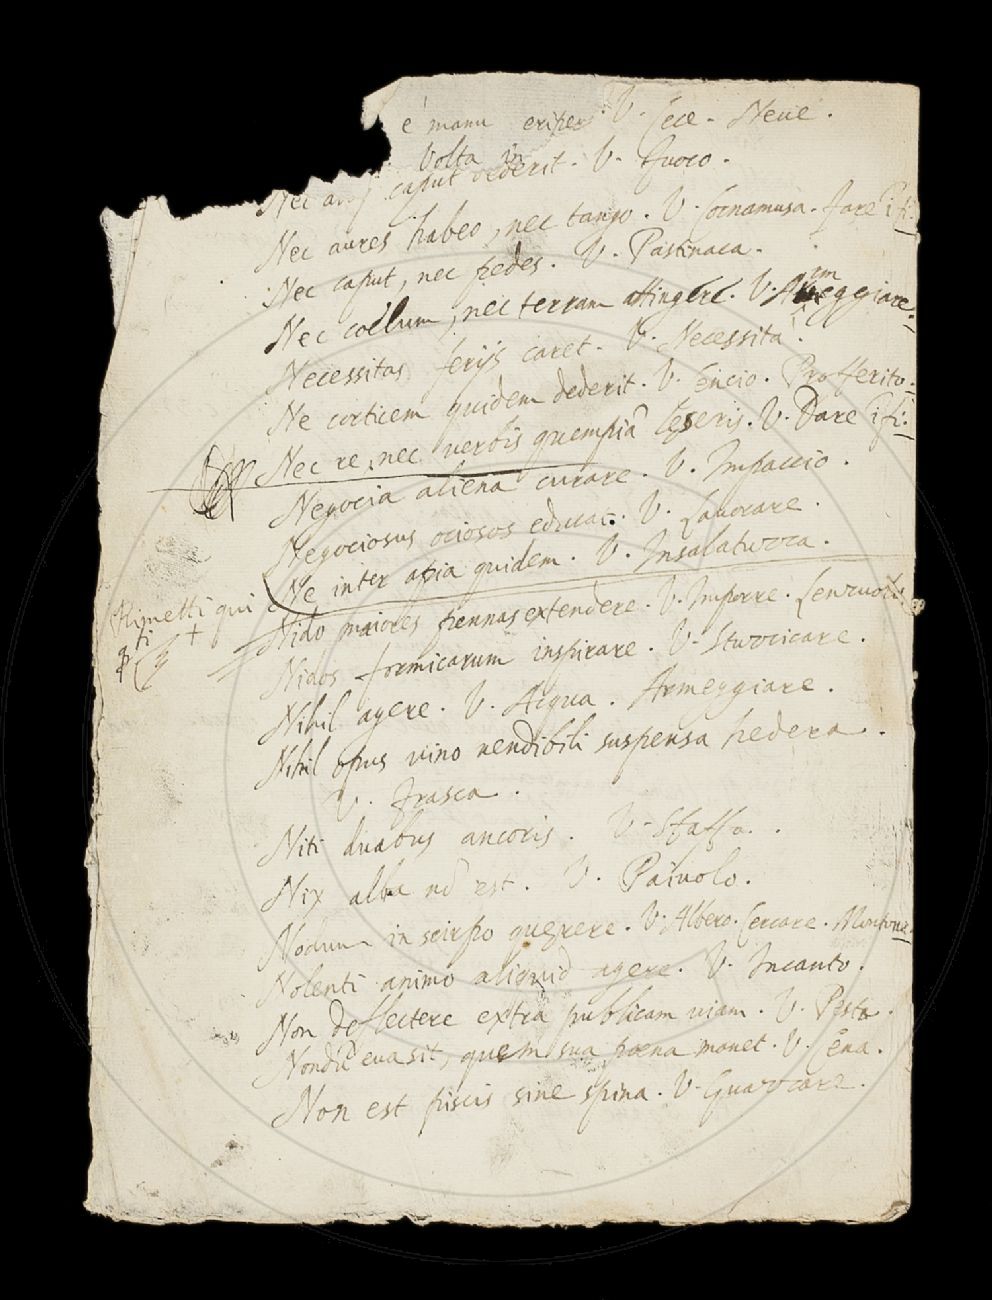 é manu eriper V. Cece. Neue.
Volta in
Nec caput dederit. V. Fuoco.
Nec aures habeo, nec tango. V. Cornamusa. Fare
Nec caput, nec pedes. V. Pastinaca.
Nec coelum, nec terram attingere. V. Armeggiare.
Necessitas ferijs caret. V. Necessità.
Ne corticem quidem dederit. V. Cencio. Profferito.
Nec re, nec verbis quempiã leseris. V. Dare
Negocia aliena curare. V. Impaccio.
Negociosus ociosos educat. V. Lauorare.
Ne inter apia quidem. V. Insalatuzza.
Rimetti qui
ti
+
Nido maiores pennas extendere. V. Imporre. Lenzuolo.
Nidos formicarum inspirare. V. Stuzzicare.
Nihil agere. V. Acqua. Armeggiare.
Nihil opus vino uendibili suspensa hedera.
V. Frasca.
Niti duabus ancoris. V. Staffa.
Nix alba nõ est. V. Paiuolo.
Nodum in scirpo querere. V. Albero. Cercare. Montone.
Nolenti animo aliquid agere. V. Incanto.
Non deflectere extra publicam uiam. V. Pesta.
Nondũ euasit, quem sua poena manet. V. Cena.
Non est piscis sine spina. V. Guazzare.